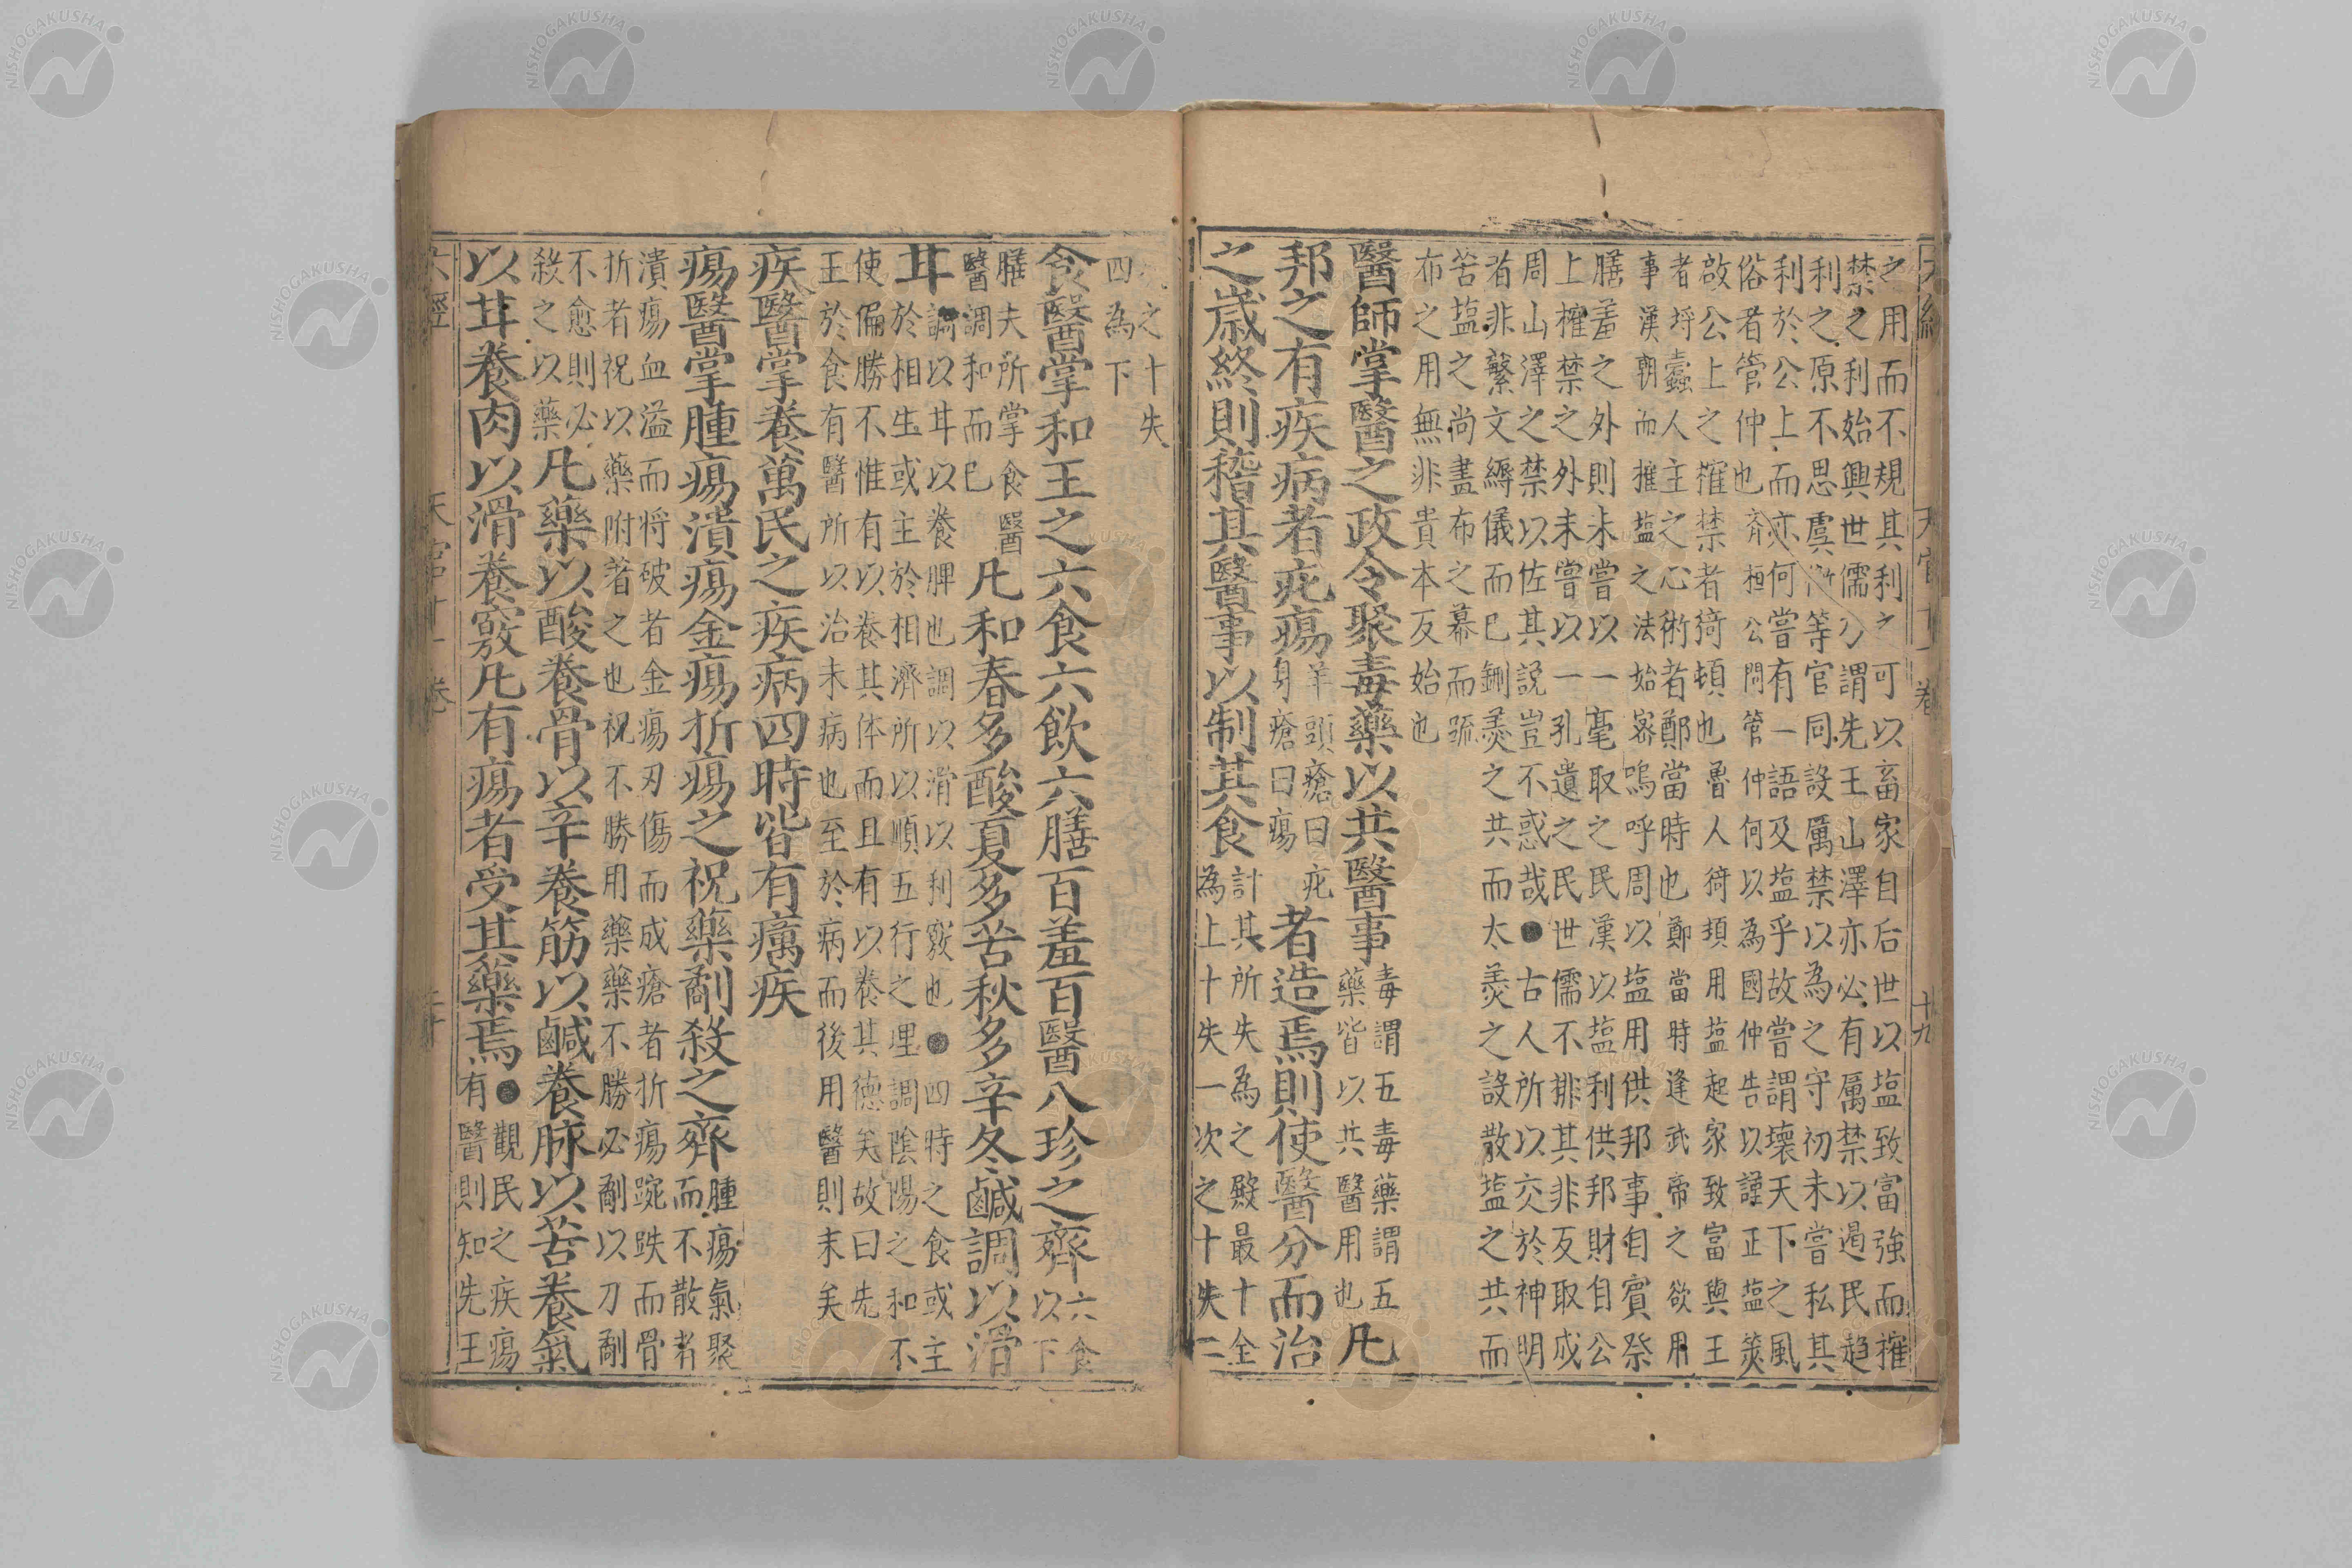 之用而不規其利之可以畜家自后世以塩致富強而搉
禁之利始興世儒乃謂先王山澤亦必有厲禁以遏民趋
利之原不思虞衡等官同設厲禁以為之守初未嘗私其
利於公上而亦何嘗有一語及塩乎故嘗謂壞天下之風
俗者管仲也齐桓公問管仲何以為國仲告以謹正塩筴
啟公上之搉禁者猗頓也魯人猗頓用塩起家致富與王
者埒蠹人主之心術者鄭當時也鄭當時逢武帝之欲用
事漢朝而搉塩之法始宻嗚呼周以塩用供邦事自賓祭
膳羞之外則未嘗以一毫取之民漢以塩利供邦財自公
上搉禁之外未嘗以一孔遺之民世儒不排其非反取成
周山澤之禁以佐其説豈不惑哉●古人所以交於神明
者非繁文縟儀而已鉶羹之共而太羹之設散塩之共而
苦塩之尚畫布之幕而疏
布之用無非貴本反始也
醫師掌醫之政令聚毒藥以共醫事
毒謂五毒藥謂五
藥皆以共醫用也
凡
邦之有疾病者疕瘍
羊頭瘡曰疕
身瘡曰瘍
者造焉則使醫分而治
之歲終則稽其醫事以制其食
計其所失為之殿最十全
為上十失一次之十失二
次之十失
四為下
食醫掌和王之六食六飲六膳百羞百醬八珍之齊
六食
以下
膳夫所掌食醫
醫調和而已
凡和春多酸夏多苦秋多辛冬鹹調以滑
甘
調以甘以養脾也調以滑以利竅也●四時之食或主
於相生或主於相濟所以順五行之理調陰陽之和不
使偏勝不惟有以養其体而且有以養其德矣故曰先
王於食有醫所以治未病也至於病而後用醫則末矣
疾醫掌養萬民之疾病四時皆有癘疾
瘍醫掌腫瘍潰瘍金瘍折瘍之祝藥劀殺之齊
腫瘍氣聚
而不散者
潰瘍血溢而将破者金瘍刃傷而成瘡者折瘍踠跌而骨
折者祝以藥附著之也祝不勝用藥藥不勝必劀以刀劀
不愈則必
殺之以藥
凡藥以酸養骨以辛養筋以鹹養脉以苦養氣
以甘養肉以滑養竅凡有瘍者受其藥焉
●觀民之疾瘍
有醫則知先王